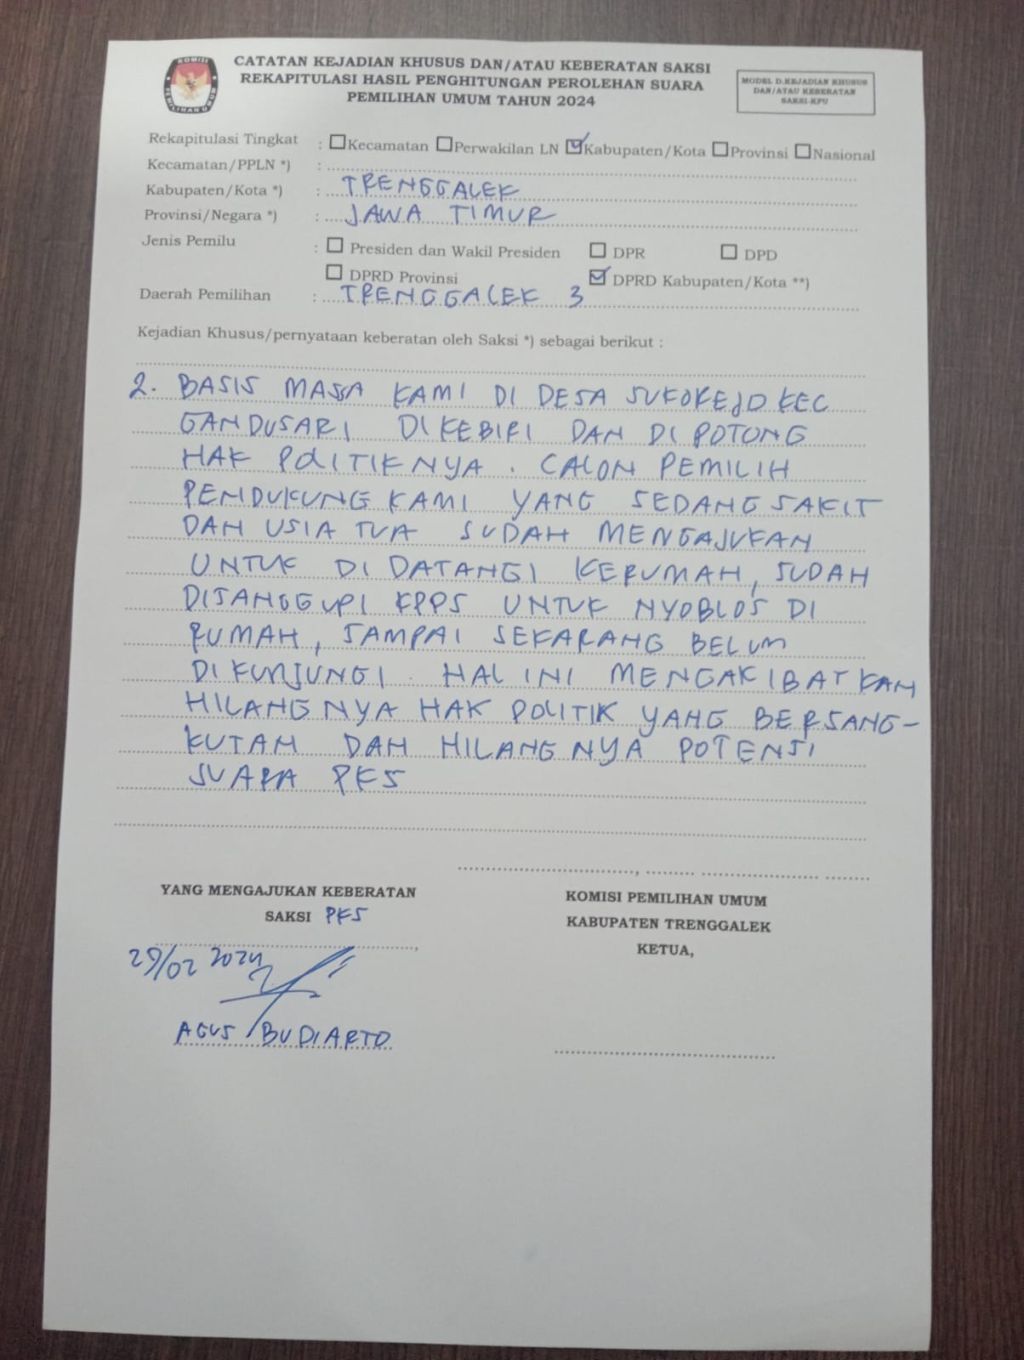 KOMISI
PEMILIHAN UMUM
CATATAN KEJADIAN KHUSUS DAN/ATAU KEBERATAN SAKSI
REKAPITULASI HASIL PENGHITUNGAN PEROLEHAN SUARA
PEMILIHAN UMUM TAHUN 2024
MODEL D.KEJADIAN KHUSUS
DAN/ATAU KEBERATAN
SAKSI-KPU
Rekapitulasi Tingkat : Kecamatan Perwakilan LN Kabupaten/Kota Provinsi Nasional
Kecamatan/PPLN *) :
Kabupaten/Kota *) : TRENGGALEK
Provinsi/Negara *) : JAWA TIMUR
Jenis Pemilu : Presiden dan Wakil Presiden DPR DPD
DPRD Provinsi DPRD Kabupaten/Kota **)
Daerah Pemilihan : TRENGGALEK 3
Kejadian Khusus/pernyataan keberatan oleh Saksi *) sebagai berikut :
2. BASIS MASSA KAMI DI DESA SUKOREJO KEC
GANDUSARI DIKEBIRI DAN DI POTONG
HAK POLITIKNYA. CALON PEMILIH
PENDUKUNG KAMI YANG SEDANG SAKIT
DAN USIA TUA SUDAH MENGAJUKAN
UNTUK DI DATANGI KERUMAH, SUDAH
DISANGGUPI KPPS UNTUK NYOBLOS DI
RUMAH, SAMPAI SEKARANG BELUM
DIKUNJUNGI. HAL INI MENGAKIBATKAN
HILANGNYA HAK POLITIK YANG BERSANG-
KUTAN DAN HILANGNYA POTENSI
SUARA PKS
YANG MENGAJUKAN KEBERATAN
SAKSI PKS
KOMISI PEMILIHAN UMUM
KABUPATEN TRENGGALEK
KETUA,
29/02 2024
AGUS BUDIARTO